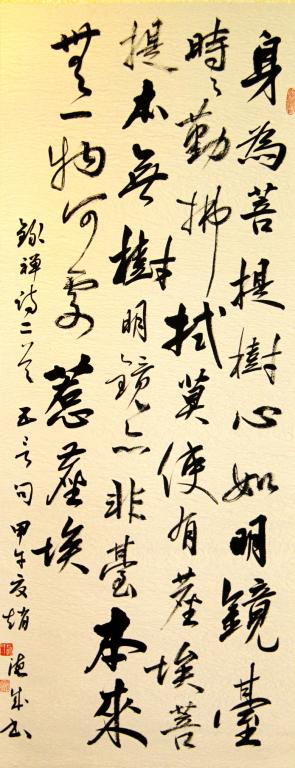 身為菩提樹心如明鏡臺
時々勤拂拭莫使有塵埃菩
提本無樹明鏡亦非臺本來
無一物何處惹塵埃
錄禪詩二首五言句甲午夏趙
成书